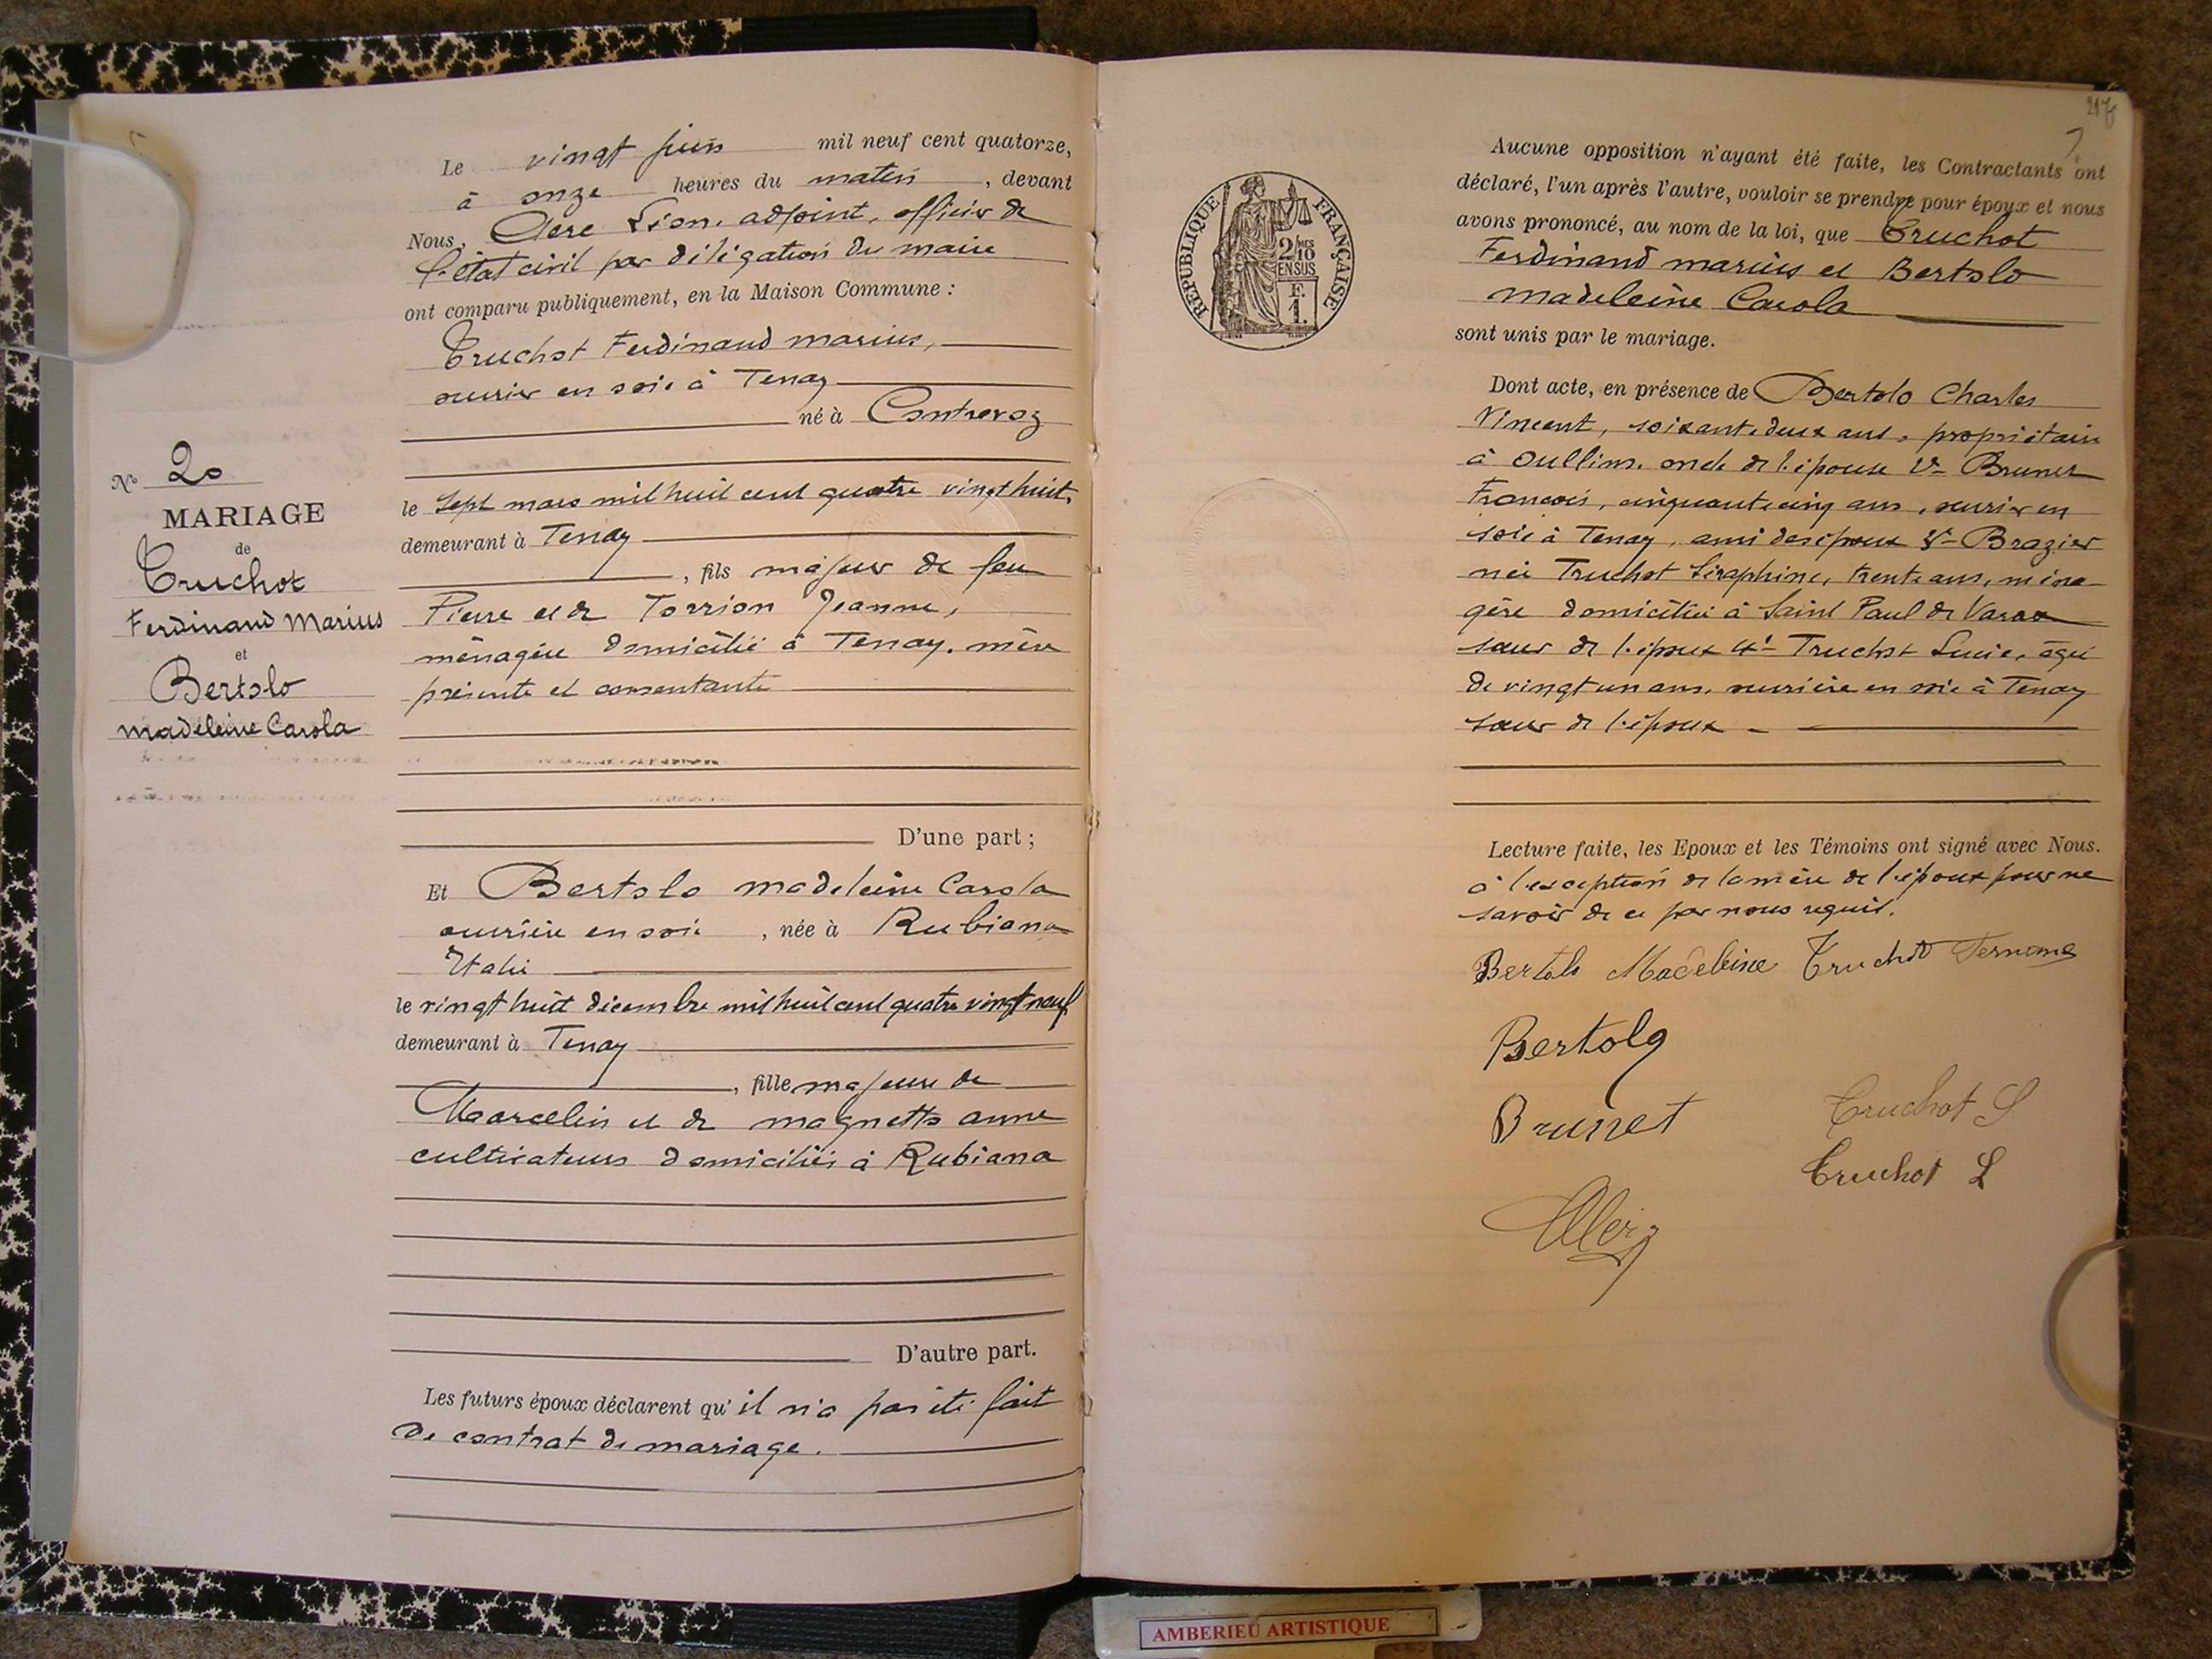 Le vingt juin mil neuf cent quatorze,
à onze heures du matin, devant
Nous, Léon, adjoint, officier de
l'état civil par délégation du maire
ont comparu publiquement, en la Maison Commune :
Truchot Ferdinand Marius,
ouvrier en soie à Tenay
né à Contrevoz
le sept mars mil huit cent quatre vingt huit,
demeurant à Tenay
, fils majeur de feu
Pierre et de Torrion Jeanne,
ménagère domiciliée à Tenay, mère
présente et consentante
D'une part ;
Et Bertolo Madeleine Carola
ouvrière en soie, née à Rubiana
Italie
le vingt huit décembre mil huit cent quatre vingt neuf
demeurant à Tenay
, fille majeure de
Marcelin et de Magnetto Anne
cultivateurs domiciliés à Rubiana
D'autre part.
Les futurs époux déclarent qu'il n'a pas été fait
de contrat de mariage.
No 20
MARIAGE
de
Truchot
Ferdinand Marius
et
Bertolo
Madeleine Carola
217
REPUBLIQUE FRANÇAISE
2/10MES
EN SUS
F.
1.
Aucune opposition n'ayant été faite, les Contractants ont
déclaré, l'un après l'autre, vouloir se prendre pour époux et nous
avons prononcé, au nom de la loi, que Truchot
Ferdinand Marius et Bertolo
Madeleine Carola
sont unis par le mariage.
Dont acte, en présence de Bertolo Charles
Vincent, soixante deux ans, propriétaire
à Oullins, oncle de l'épouse 2e Brunet
François, cinquante cinq ans, ouvrier en
soie à Tenay, ami des époux 3e Brazier
née Truchot Séraphine, trente ans, ména
gère domiciliée à Saint Paul de Varax
sœur de l'époux 4e Truchot Lucie, âgée
de vingt un ans, ouvrière en soie à Tenay
sœur de l'époux
Lecture faite, les Epoux et les Témoins ont signé avec Nous.
à l'exception de la mère de l'époux pour ne
savoir de ce par nous requis.
Bertolo Madeleine Truchot
Bertolo
Brunet
Truchot S
Truchot L
AMBERIEU ARTISTIQUE